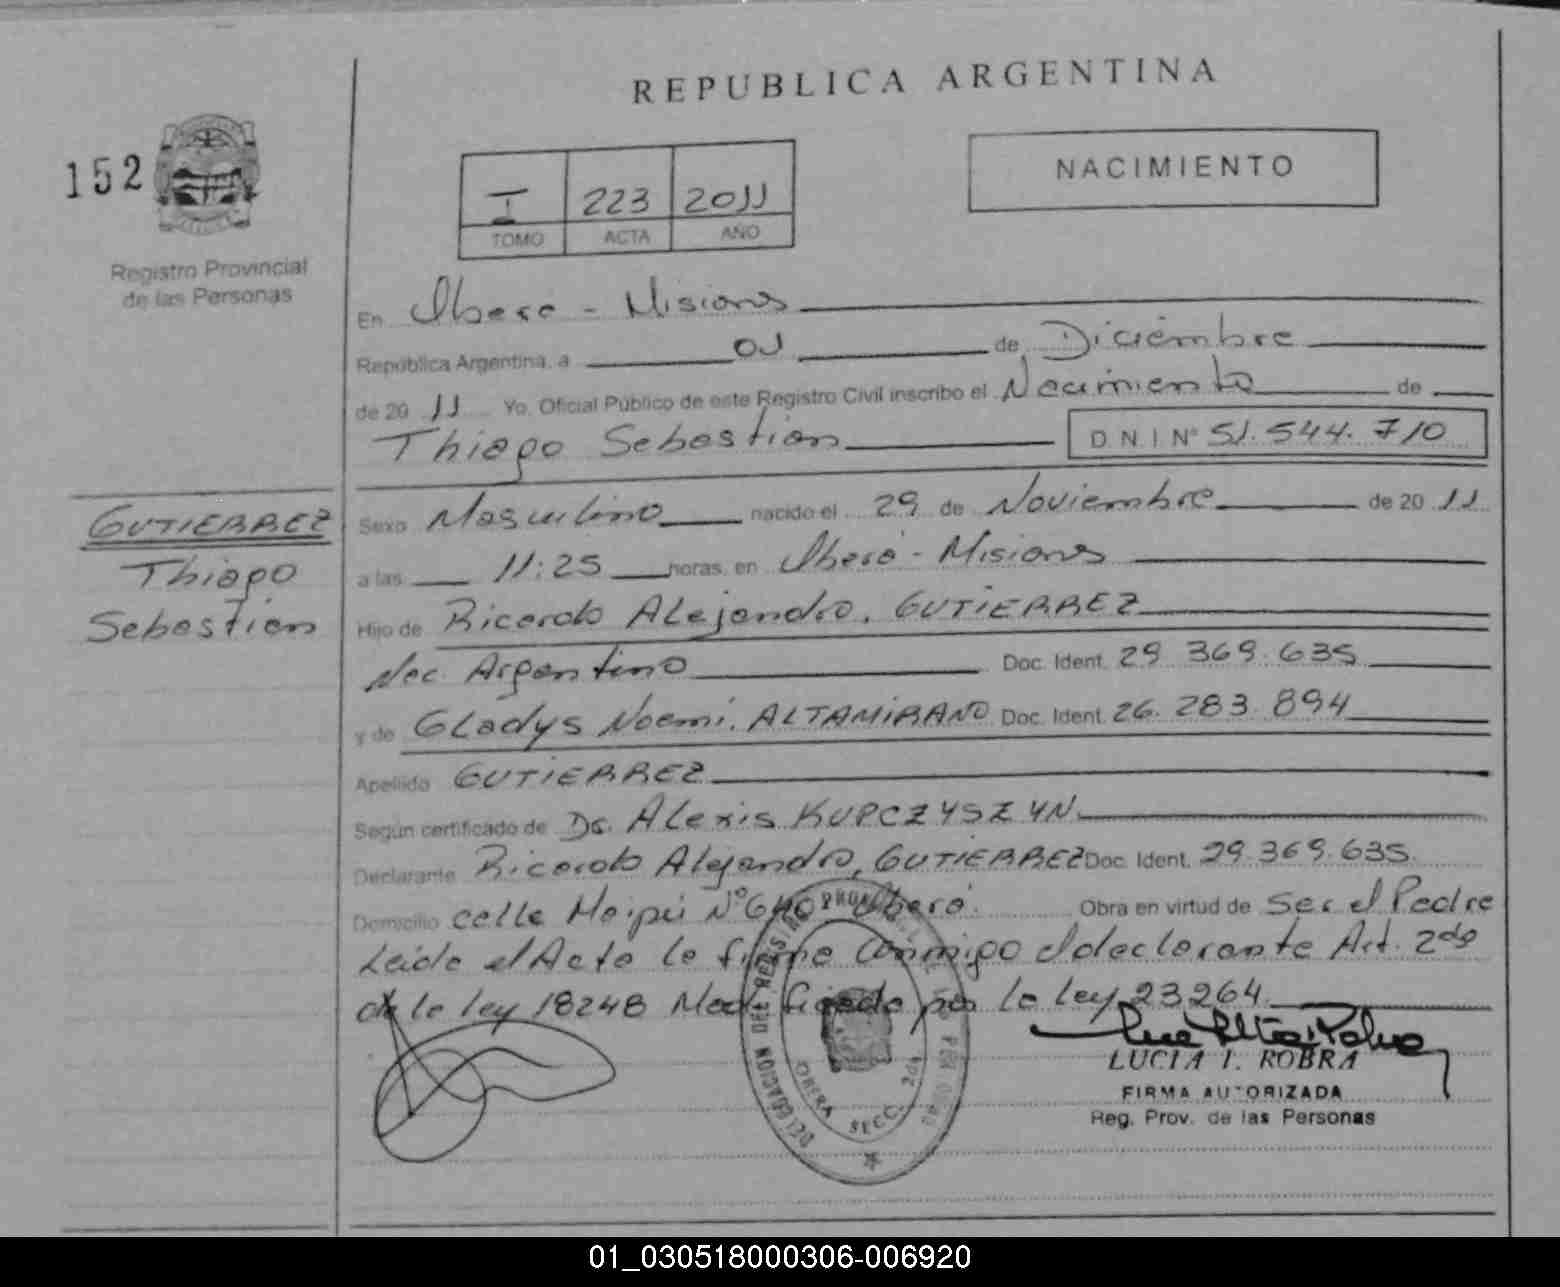 REPUBLICA ARGENTINA
152
Registro Provincial
de las Personas
I 223 2011
TOMO ACTA AÑO
NACIMIENTO
En Oberá - Misiones
República Argentina, a 01 de Diciembre
de 20 11 Yo, Oficial Público de este Registro Civil inscribo el Nacimiento de
Thiago Sebastian D.N.I Nº 51.544.710
GUTIERREZ
Thiago
Sebastian
Sexo Masculino nacido el 29 de Noviembre de 20 11
a las 11:25 horas, en Oberá - Misiones
Hijo de Ricardo Alejandro, GUTIERREZ
Nac. Argentino Doc. Ident. 29 369.635
y de Gladys Noemi, ALTAMIRANO Doc. Ident. 26.283.894
Apellido GUTIERREZ
Según certificado de Dr. Alexis KUPCZYSZYN.
Declarante Ricardo Alejandro, GUTIERREZ Doc. Ident. 29.369.635
Domicilio calle Maipú Nº 640 Oberá. Obra en virtud de Ser el Padre
Leida el Acta la firma conmigo el declarante Art. 2do
de la ley 18248 Modificado por la ley 23264.
DELEGACION DEL REGISTRO PROVINCIAL DE LAS PERSONAS
OBERA SECC. 2da
LUCIA I. ROBRA
FIRMA AUTORIZADA
Reg. Prov. de las Personas
01_030518000306-006920